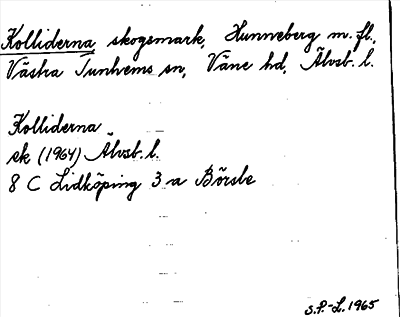 Kolliderna skogsmark, Hunneberg m.fl.,
Västra Tunhems sn, Väne hd, Älvsb. l.
Kolliderna
ek (1964) Älvsb. l.
8 C Lidköping 3 a Börsle
S.P.-L. 1965